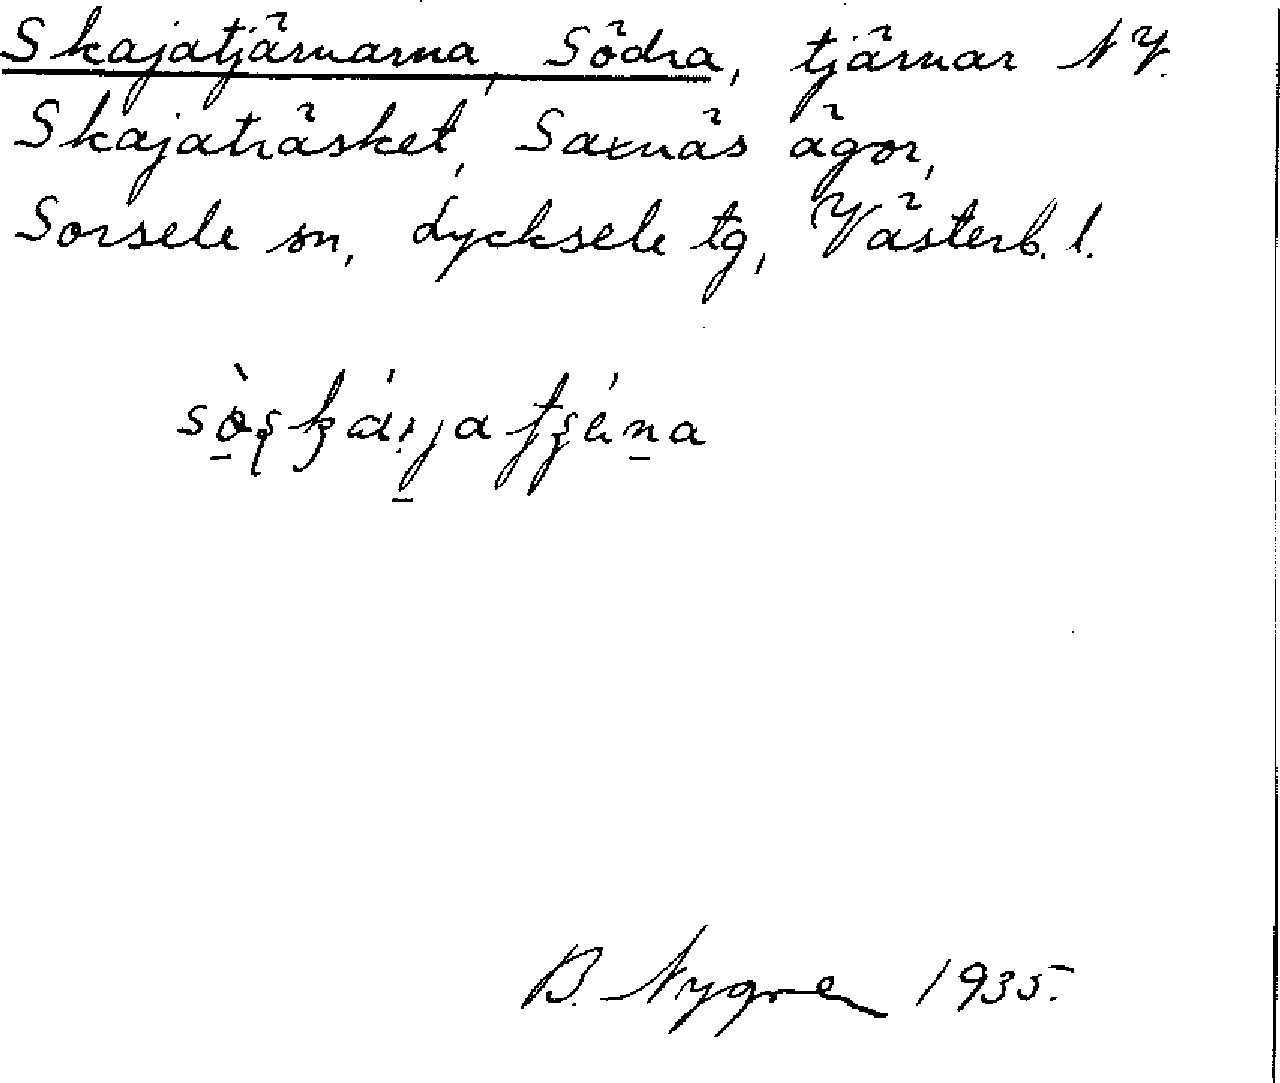 Skajatjärnarna, Södra, tjärnar NV.
Skajaträsket, Saxnäs ägor,
Sorsele sn, Lycksele tg, Västerb. l.
B. Nygren 1935.